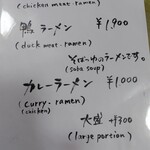 (chicken meat・ramen)
鴨 ラーメン ¥1,900
(duck meat・ramen)
そばつゆのラーメンです。
(soba soup)
カレーラーメン ¥1000
(curry・ramen)
(chicken)
大盛 +¥300
(large portion)